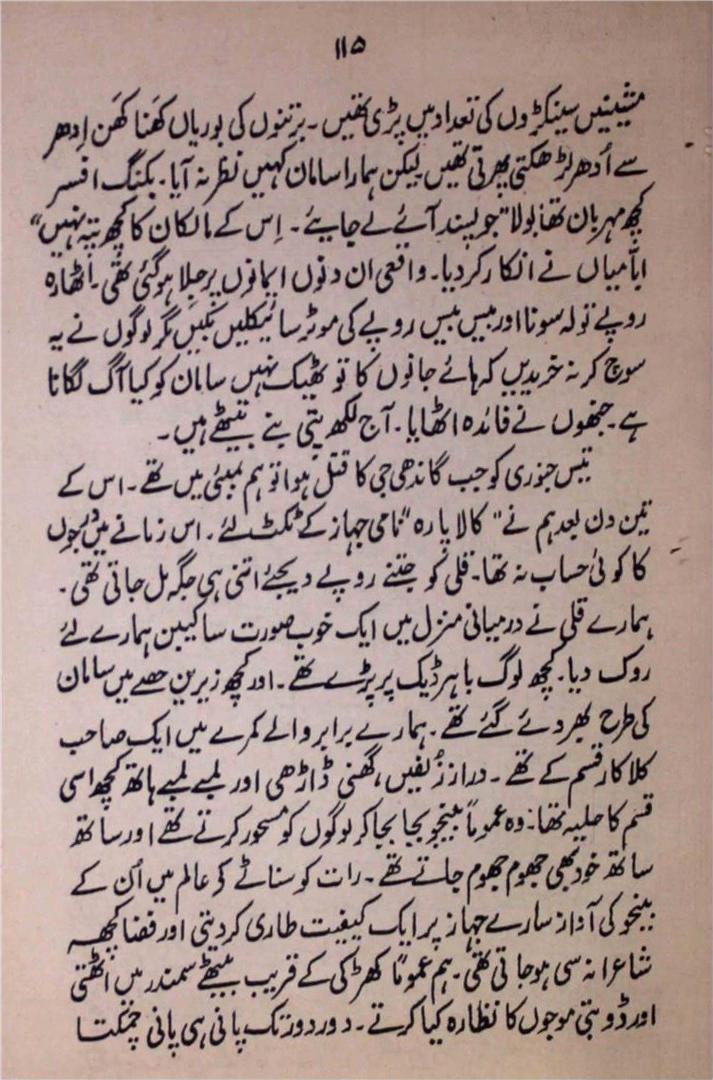 ۱۱۵
مشینیں سینکڑوں کی تعداد میں پڑی تھیں۔ برتنوں کی بوریاں کھَنا کھَن اِدھر
سے اُدھر لڑھکتی پھرتی تھیں لیکن ہمارا سامان کہیں نظر نہ آیا۔ بکنگ افسر
کچھ مہربان تھا، بولا "جو پسند آئے لے جایئے۔ اِس کے مالکان کا کچھ پتہ نہیں"
ابّا میاں نے انکار کر دیا۔ واقعی ان دنوں ایمانوں پر جِلا ہو گئی تھی۔ اٹھارہ
روپے تولہ سونا اور بیس بیس روپے کی موٹر سائیکلیں بکیں مگر لوگوں نے یہ
سوچ کر نہ خریدیں کہ ہائے جانوں کا تو ٹھیک نہیں سامان کو کیا آگ لگانا
ہے۔ جنھوں نے فائدہ اٹھایا۔ آج لکھ پتی بنے بیٹھے ہیں۔
تیس جنوری کو جب گاندھی جی کا قتل ہوا تو ہم بمبئی میں تھے۔ اس کے
تین دن بعد ہم نے "کالا پارہ" نامی جہاز کے ٹکٹ لئے۔ اس زمانے میں درجوں
کا کوئی حساب نہ تھا۔ قلی کو جتنے روپے دیجئے اتنی ہی جگہ مل جاتی تھی۔
ہمارے قلی نے درمیانی منزل میں ایک خوب صورت سا کیبن ہمارے لئے
روک دیا۔ کچھ لوگ باہر ڈیک پر پڑے تھے۔ اور کچھ زیریں حصے میں سامان
کی طرح بھر دئے گئے تھے۔ ہمارے برابر والے کمرے میں ایک صاحب
کلاکار قسم کے تھے۔ دراز زُلفیں، گھنی ڈاڑھی اور لمبے لمبے ہاتھ کچھ اسی
قسم کا حلیہ تھا۔ وہ عموماً بینجو بجا بجا کر لوگوں کو مسحور کرتے تھے اور ساتھ
ساتھ خود بھی جھوم جھوم جاتے تھے۔ رات کو سناٹے کے عالم میں اُن کے
بینجو کی آواز سارے جہاز پر ایک کیفیت طاری کر دیتی اور فضا کچھ
شاعرانہ سی ہو جاتی تھی۔ ہم عموماً کھڑکی کے قریب بیٹھے سمندر میں اٹھتی
اور ڈوبتی موجوں کا نظارہ کیا کرتے۔ دور دور تک پانی ہی پانی چمکتا